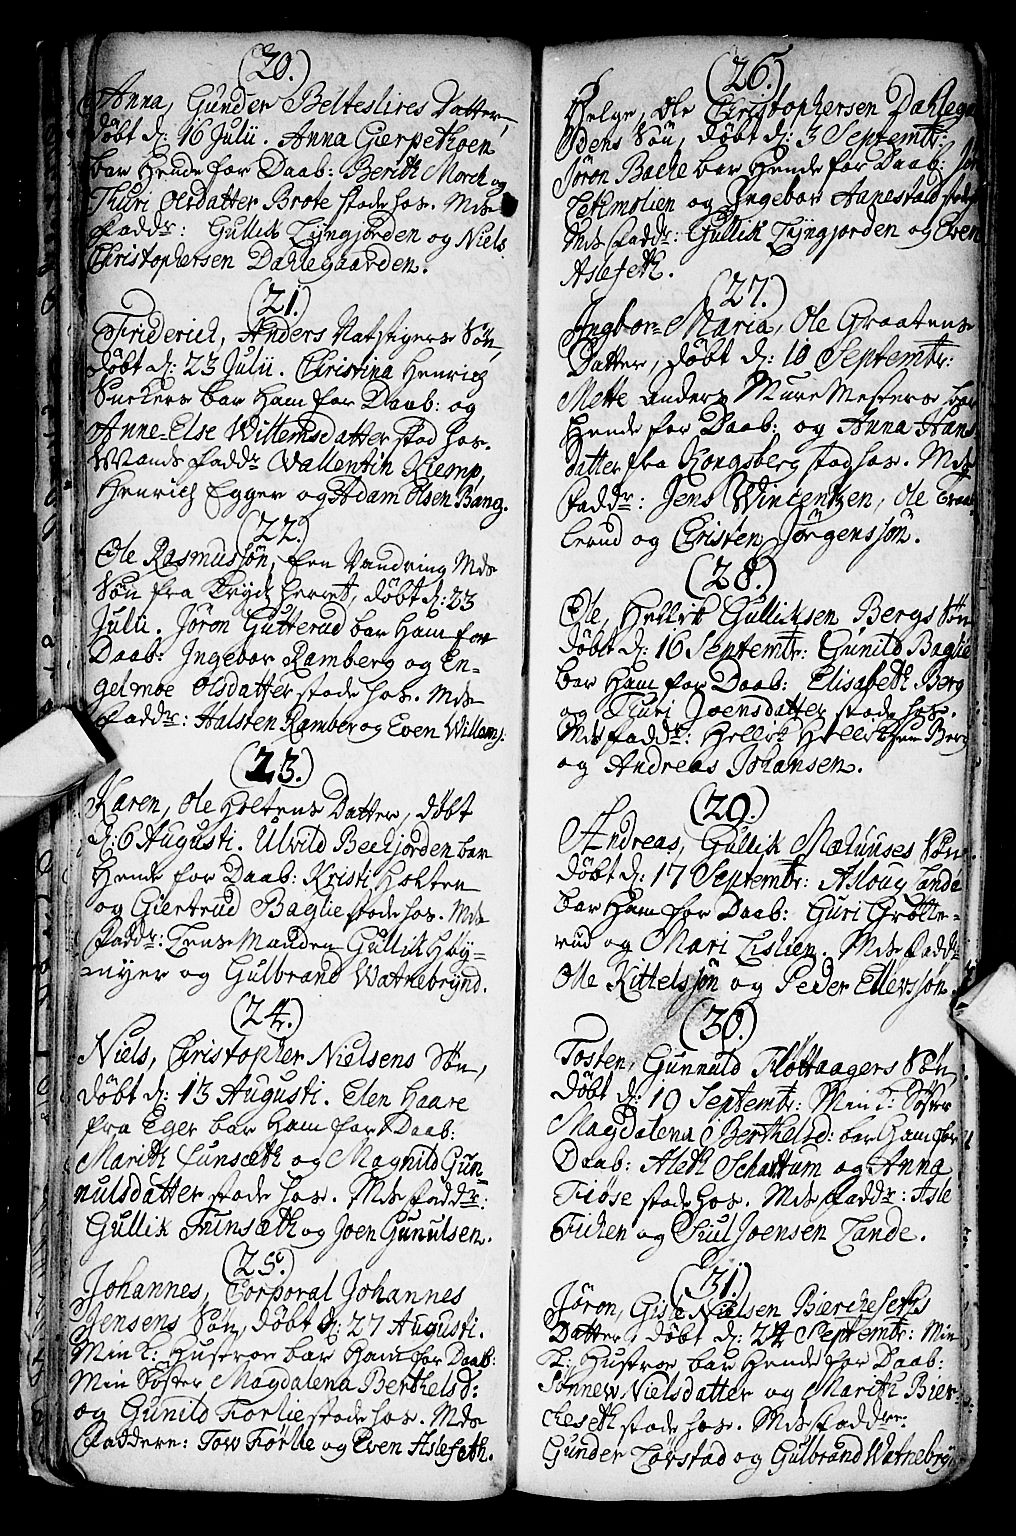 (20.)
Anna, Gunder Belteslires Datter,
döbt d: 16 Julii. Anna Gierpethoen
bar Hende for Daab: Berith Morch og
Thuri Olsdatter Brote stode hos. Mds
Faddr: Gullik Lyngjorden og Niels
Christophersen Dahlegaarden.
(21.)
Friderich, Anders Natstigers Sön,
döbt d: 23 Julii. Christina Henrich
bar Ham for Daab: og
Anne-Else Willemsdatter stod hos.
Mands Faddr Vallentin Kiemp,
Henrich Egger og Adam Olsen Bang.
(22.)
Ole Rasmussön, een Vandring Mds
Sön fra herret, döbt d: 23
Julii. Jöron Gutterud bar Ham for
Daab: Ingebor Ramberg og En-
gelmoe Olsdatter stode hos. Mds
Faddr: Halsten Ramber og Even Willomj.
(23.)
Karen, Ole Holtens Datter, döbt
d: 6 Augusti. Ulvild Beckjorden bar
Hende for Daab: Kristi Holten
og Giertrud Baglie stode hos. Mds
Faddr: Lensmanden Gullik Höy-
myer og Gulbrand Watnebrynd.
(24.)
Niels, Christopher Nielsens Sön,
döbt d: 13 Augusti. Elen Haare
fra Eger bar Ham for Daab:
Marith Funseth og Magnild Gun-
nulsdatter stode hos. Mds Faddr:
Gullik Funseth og Joen Gunulsen.
(25.)
Johannes, Corporal Johannes
Jensens Sön, döbt d: 27 Augusti.
Min K: Hustroe bar Ham for Daab:
Min Söster Magdalena Berthelsd:
og Gunild Forlie stode hos. Mds
Faddere: Tow Förlie og Even Aslefeth.
(26.)
Helge, Ole Christophersen Dahlegaa
dens Sön, döbt d: 3 Septembr:
Jöron Bache bar Hende for Daab:
og Ingebor Hanestad stode
Mds Faddr: Gullik Lyngjorden og Even
Aslefeth.
(27.)
Ingbor-Maria, Ole Graatens
Datter, döbt d: 10 Septembr:
Mette Anders Mure Mesters bar
Hende for Daab: og Anna Hans
datter fra Kongsberg stod hos. Mds
Faddr: Jens Wincentzen, Ole Traa-
lerud og Cristen Jörgenssön.
(28.)
Ole, Hellik Gulliksen Bergs Sön
döbt d: 16 Septembr: Gunild Baglie
bar Ham for Daab: Elisabeth Berg
og Thuri Joensdatter stode hos.
Mds Faddr: Hellik Helliksen Berg
og Andreas Johansen.
(29.)
Andreas, Gullik Mælumses Sön
döbt d: 17 Septembr: Asloug Landa
bar Ham for Daab: Guri Grölle-
rud og Mari Lislien. Mds Faddr
Ole Kittelssön og Peder Ellerssön.
(30.)
Tosten, Gunnuld Flöttaagers Sön,
döbt d: 19 Septembr: Min K: Söster
Magdalena Berthelsd: bar Ham for
Daab: Aleth Schartum og Anna
Fiöse stode hos. Mds Faddr: Asle
Fichen og Siul Joensen Lande.
(31.)
Jöron, Gisle Nielsen Bierkeseths
Datter, döbt d: 24 Septembr: Min
K: Hustroe bar Hende for Daab:
Sönnew Nielsdatter og Marith Bier-
keseth stode hos. Mds Faddre:
Gunder Lövstad og Gulbrand Watnebryn